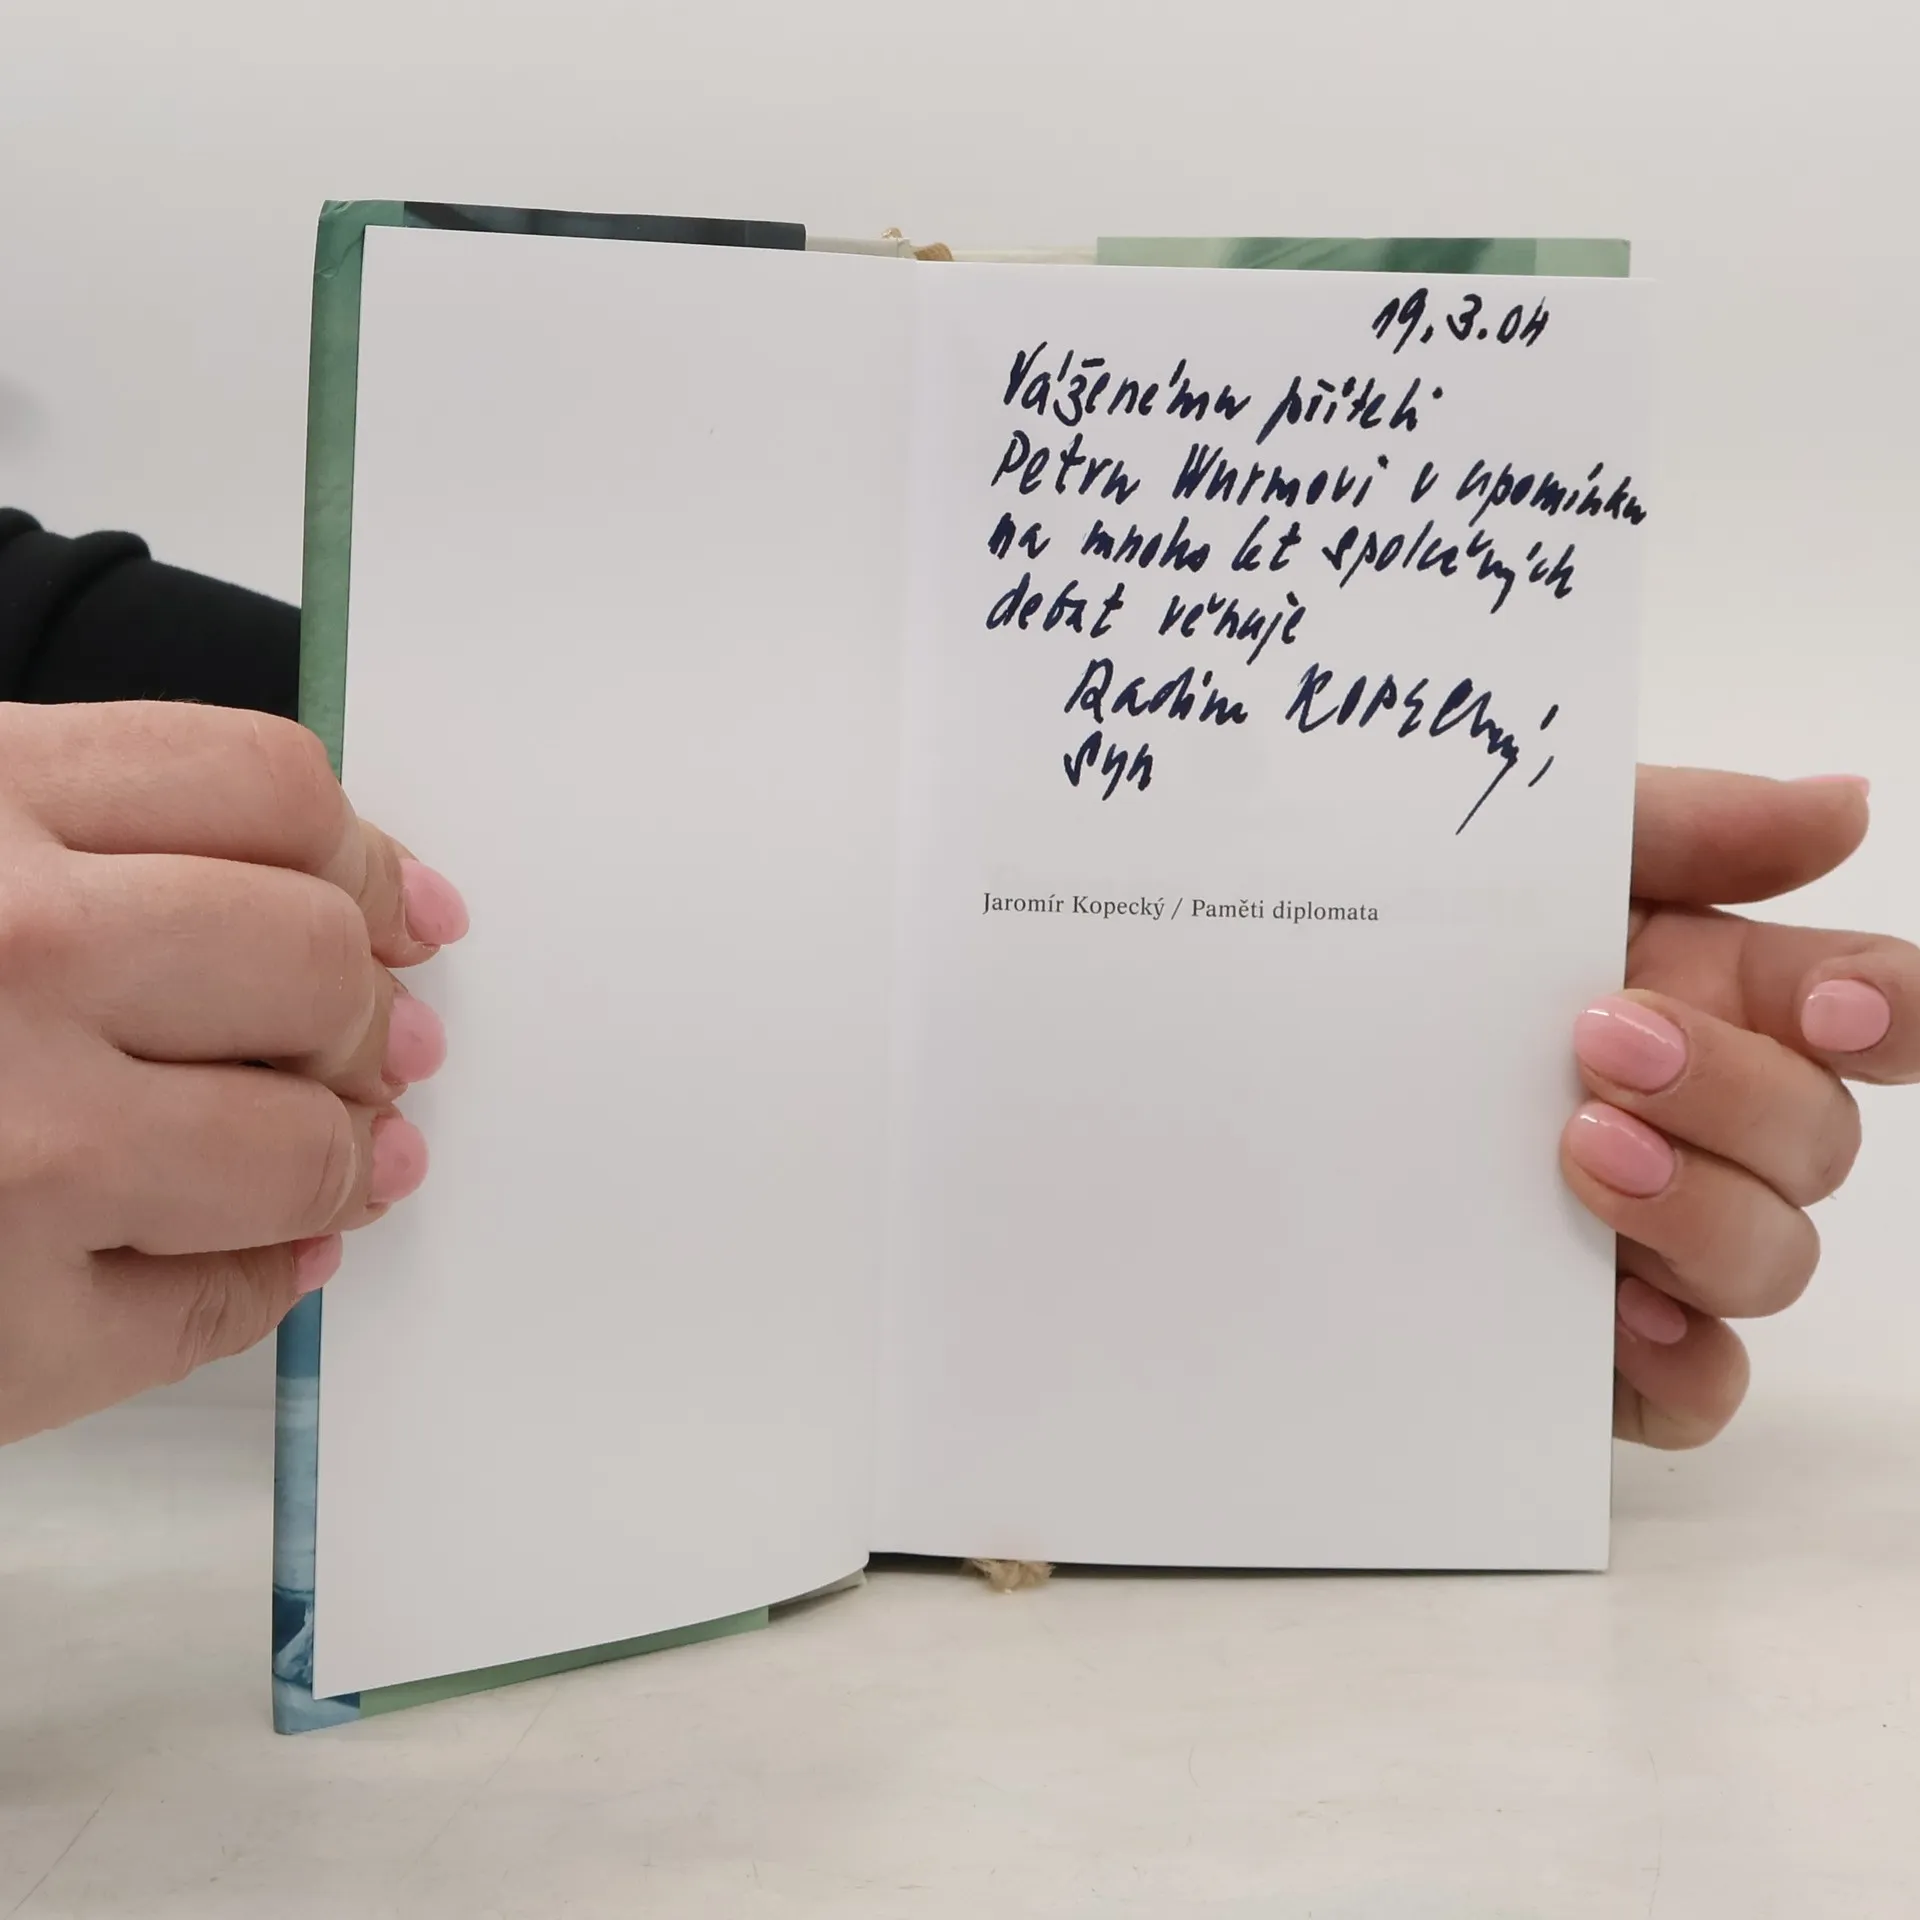 19.3.04
Váženému příteli
Petru Wurmovi v upomínku
na mnoho let společných
debat věnuje
Radim Kopecký,
syn
Jaromír Kopecký / Paměti diplomata